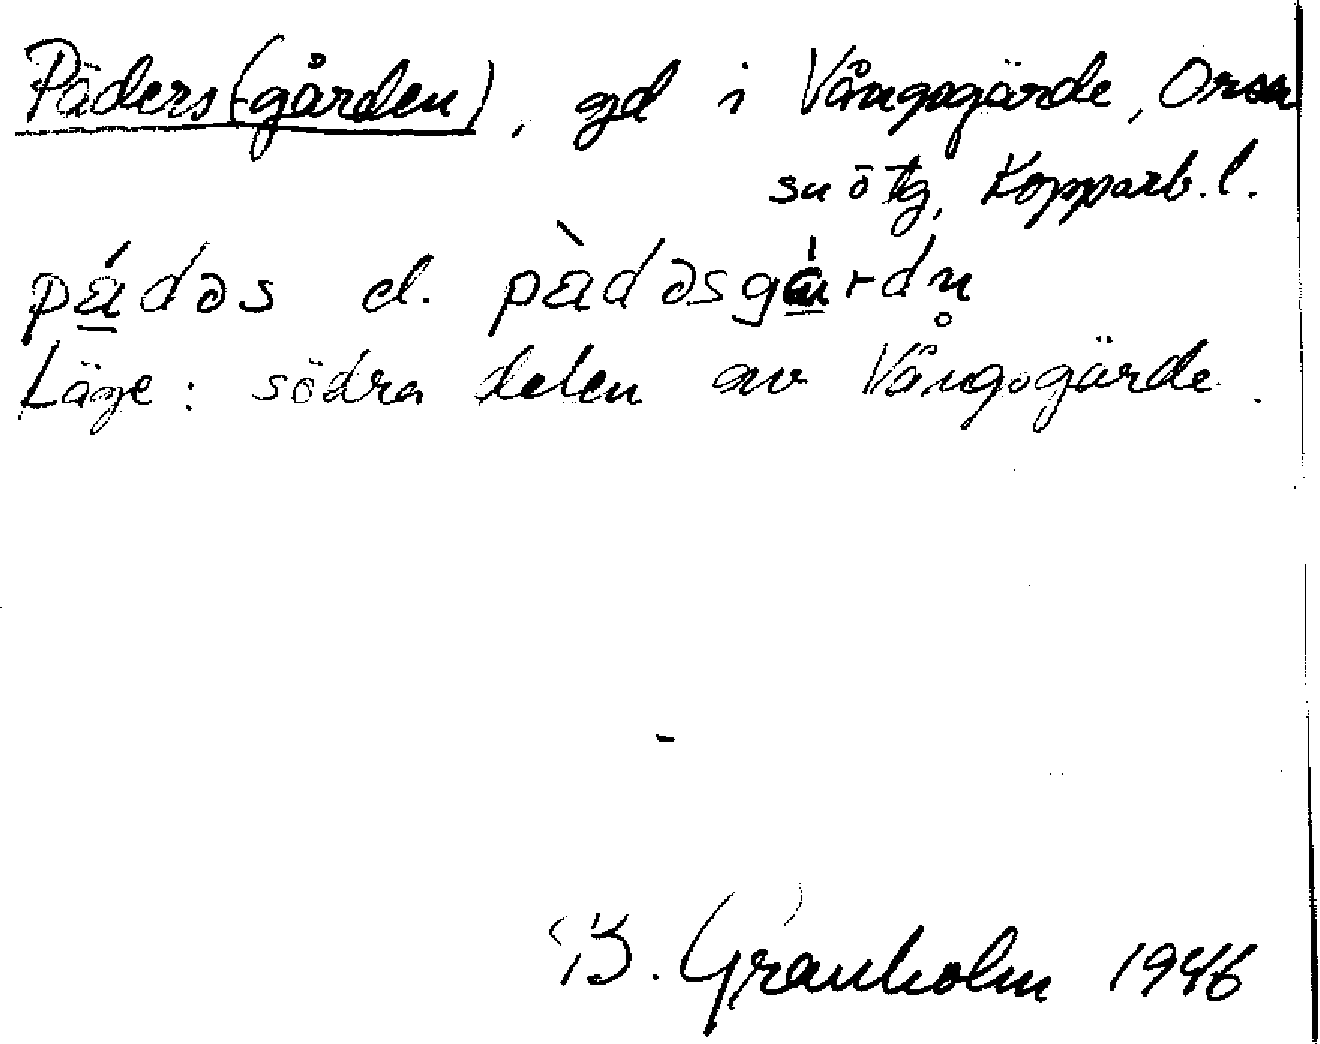 Päders(gården), gd i Vångsgärde, Orsa
sn ö tg, Kopparb. l.
pá̲dəs el. pàdəsgá̲rdn̥
Läge: södra delen av Vångsgärde.
B. Granholm 1946